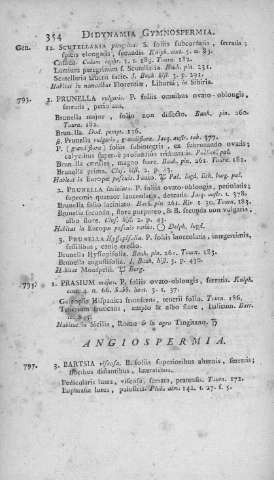 354 DIDYNAMIA GYMNOSPERMIA.
Gen. 12. SCUTELLARIA peregrina. S. foliis subcordatis, serratis;
spicis elongatis, secundis. Kniph. cent. 5. n. 83.
Cassida. Colum. ecphr. 1. t. 189. Tourn. 182.
Lamium peregrinum f. Scutellaria. Bauh. pin. 231.
Scutellaria teucrii facie. J. Bauh. hist. 3. p. 291.
Habitat in nemoribus Florentiae, Liburni; in Sibiria.
795. 1. PRUNELLA vulgaris. P. foliis omnibus ovato-oblongis,
serratis, petiolatis.
Brunella major, folio non dissecto. Bauh. pin. 260.
Tourn. 182.
Brunella. Dod. pempt. 136.
β. Prunella vulgaris, grandiflora. Jacq. austr. tab. 377.
P. (grandiflora) foliis subintegris, ex subrotundo ovatis;
calycibus superne profundius tridentatis.
Brunella caeruleo, magno flore. Bauh. pin. 261. Tourn. 182.
Brunella prima. Clus. hist. 2. p. 43.
Habitat in Europae pascuis. ♃ Pal. lugd. lith. burg. pal.
2. PRUNELLA laciniata. P. foliis ovato-oblongis, petiolatis;
supremis quatuor lanceolatis, dentatis. Jacq. austr. t. 378.
Brunella folio laciniato. Bauh. pin. 261. Riv. t. 30. Tourn. 183.
Brunella secunda, flore purpureo, & B. secunda non vulgaris,
albo flore. Clus. hist. 2. p. 43.
Habitat in Europae pascuis Delph. lugd.
3. PRUNELLA Hyssopifolia. P. foliis lanceolatis, integerrimis,
sessilibus; caule
Brunella Hyssopifolia. Bauh. pin. 261. Tourn. 183.
Brunella angustifolia. J. Bauh. hist. 3. p. 430.
Habitat Monspelii. ♃ Burg.
1. PRASIUM majus. P. foliis ovato-oblongis, serratis. Kniph.
cent. 4. n. 66. Sabb. hort. 3. t. 37.
Galeopsis Hispanica frutescens, teucrii folio. Tourn. 186.
Teucrium fruticans, amplo & albo flore, italicum. Barr.
Habitat in Sicilia, Romae & in agro Tingitano. ♄
ANGIOSPERMIA.
797. 3. BARTSIA viscosa. B. foliis superioribus alternis, serratis;
floribus distantibus, lateralibus.
Pedicularis lutea, viscosa, serrata, pratensis. Tourn. 172.
Euphrasia lutea, palustris. Pluk. alm. 142. t. 27. f. 5.